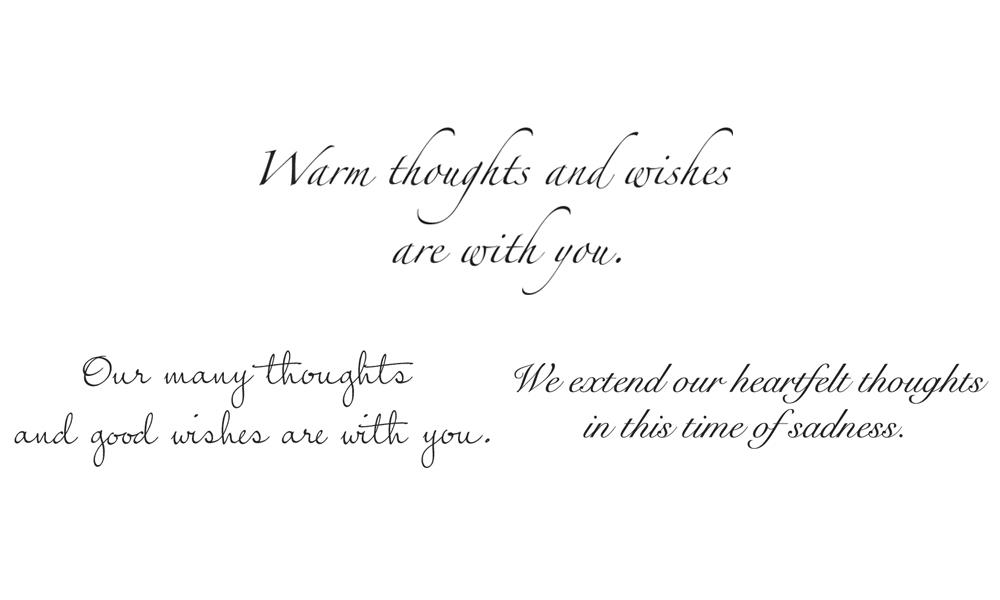 Warm thoughts and wishes
are with you.
Our many thoughts
and good wishes are with you.
We extend our heartfelt thoughts
in this time of sadness.